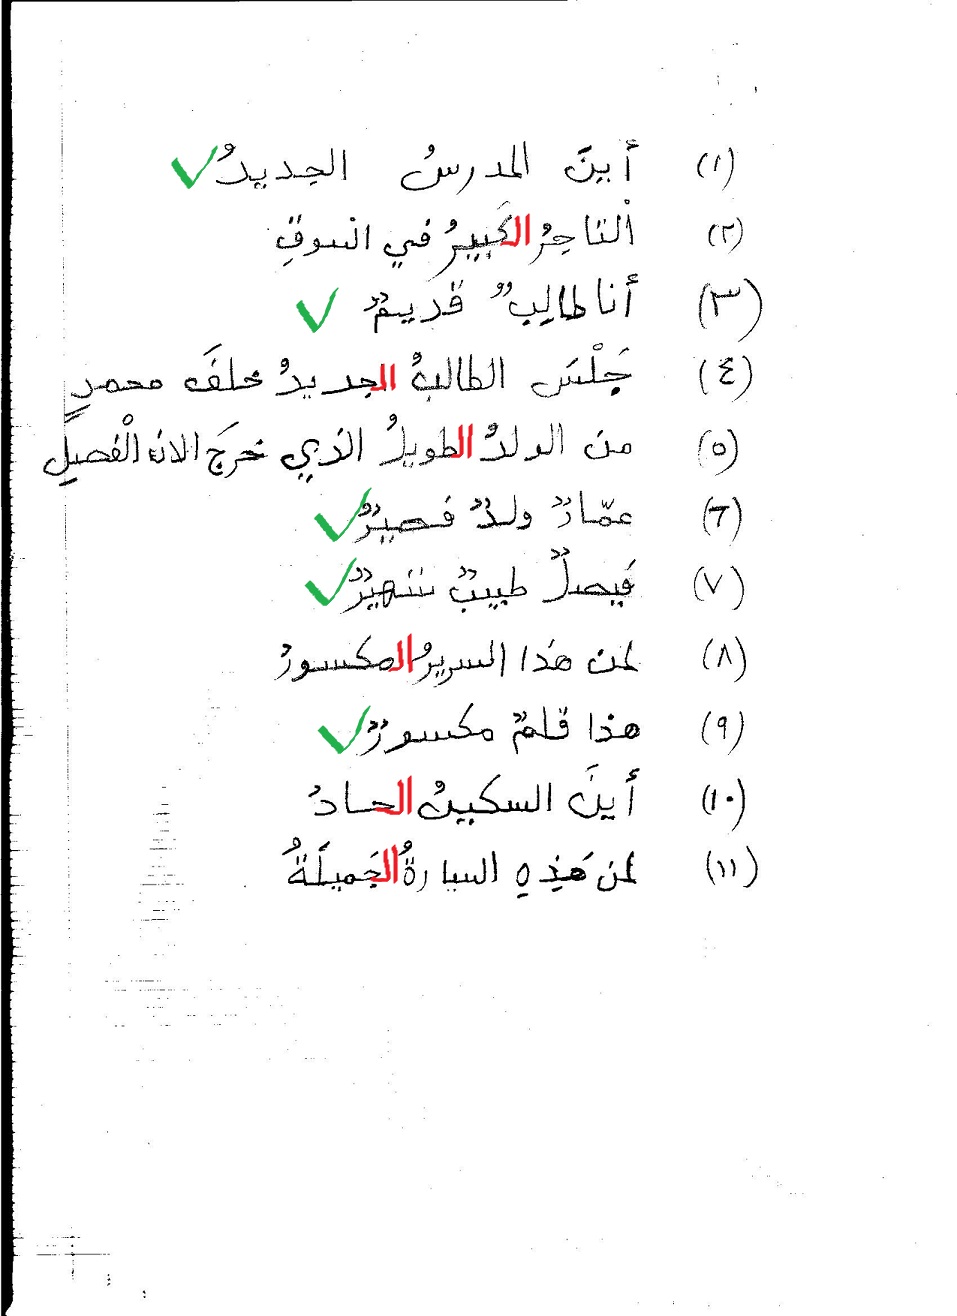 (١) أينَ المدرسُ الجديدُ
(٢) ألتاجرُ الكَبِيرُ في السوقِ
(٣) أنا طالِبٌ قديمٌ
(٤) جَلْسَ الطالبُ الجديدُ خلفَ محمدٍ
(٥) من الولدُ الطويلُ الذي خرَجَ الان الْفصلِ
(٦) عمّارٌ ولدٌ قصيرٌ
(٧) فَيصلٌ طبيبٌ شهيرٌ
(٨) لمن هذا السريرُ المكسورُ
(٩) هذا قلمٌ مكسورٌ
(١٠) أينَ السكينُ الحادُ
(١١) لمن هَذِهِ السيارةُ الجَميلَةُ